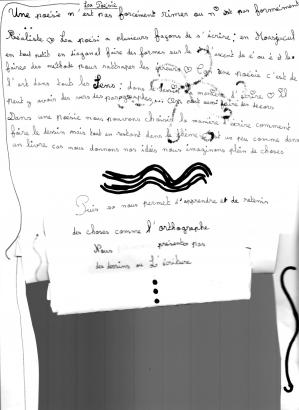 La Poésie
Une poésie n'est pas forcément rimer ou n'est pas forcément
Réaliste La poési a plusieurs façons de s'écrire : en Majuscul
en tout petit en diagonal faire des formes sur le
faires des methode pour rattraper les erreurs Car une poésie c'est de
l'est dans tout les Sens : dans le dessin manière d'écrire
peut y avoir des vers des paragraphes... On peut aussi faire des décors
Dans une poésie nous pouvons choisir la manière d'écrire comment
faire le dessin mais tout en restant dans le thème un peu comme dans
un livre car nous donnons nos idées nous imaginons plein de choses
Puis sa nous permet d'apprendre et de retenir
des choses comme l'orthographe
Nous présentes pas
des dessins ou L'écriture